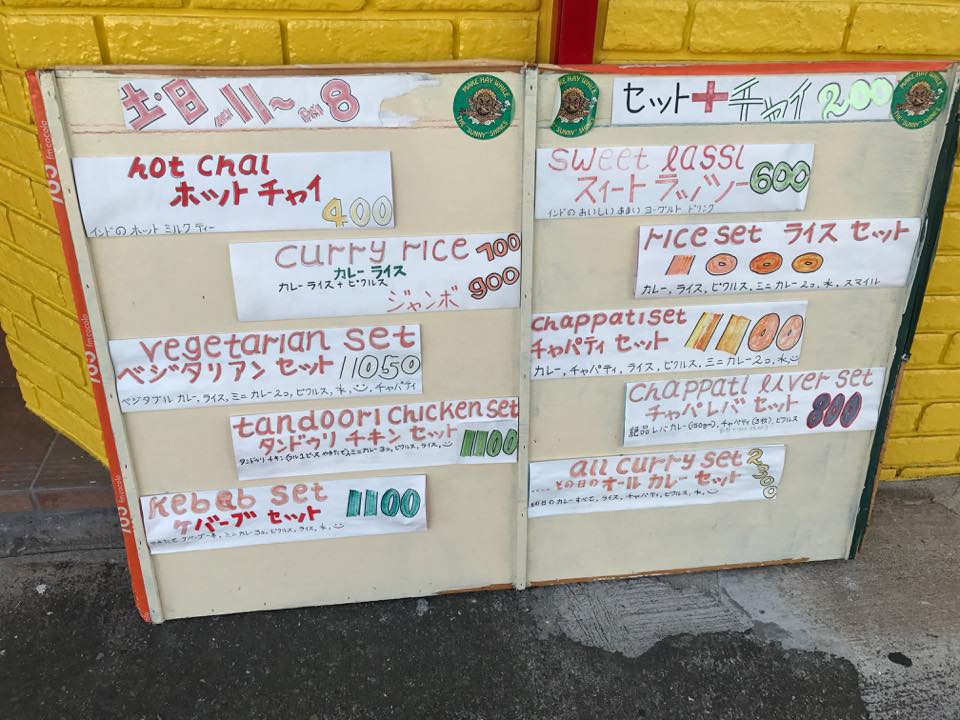 土・日 AM 11～PM 8
MAKE HAY WHILE
THE "SUNNY" SHINES
hot chai
ホット チャイ
400
インドの ホット ミルク ティー
curry rice 700
カレー ライス
カレー ライス + ピクルス
ジャンボ 900
vegetarian set
ベジタリアン セット 1050
ベジタブル カレー, ライス, ミニ カレー 2コ, ピクルス, 水, チャパティ
tandoori chicken set
タンドゥリ チキン セット 1100
kebab set
ケバーブ セット 1100
fm cocolo
765
fm cocolo
765
fm cocolo
765
MAKE HAY WHILE
THE "SUNNY" SHINES
セット+チャイ 200
MAKE HAY WHILE
THE "SUNNY" SHINES
sweet lassi
スィート ラッシー 600
インドの おいしい あまい ヨーグルト ドリンク
rice set ライス セット
1000
カレー, ライス, ピクルス, ミニ カレー 2コ, 水, スマイル
chappati set
チャパティ セット 1100
カレー, チャパティ, ライス, ピクルス, ミニ カレー 2コ, 水
chappati liver set
チャパ レバ セット 800
絶品 レバ カレー (150gm), チャパティ (3枚), ピクルス
all curry set 2000
.... その日の オール カレー セット
その日の カレー すべて, ライス, チャパティ, ピクルス, 水,